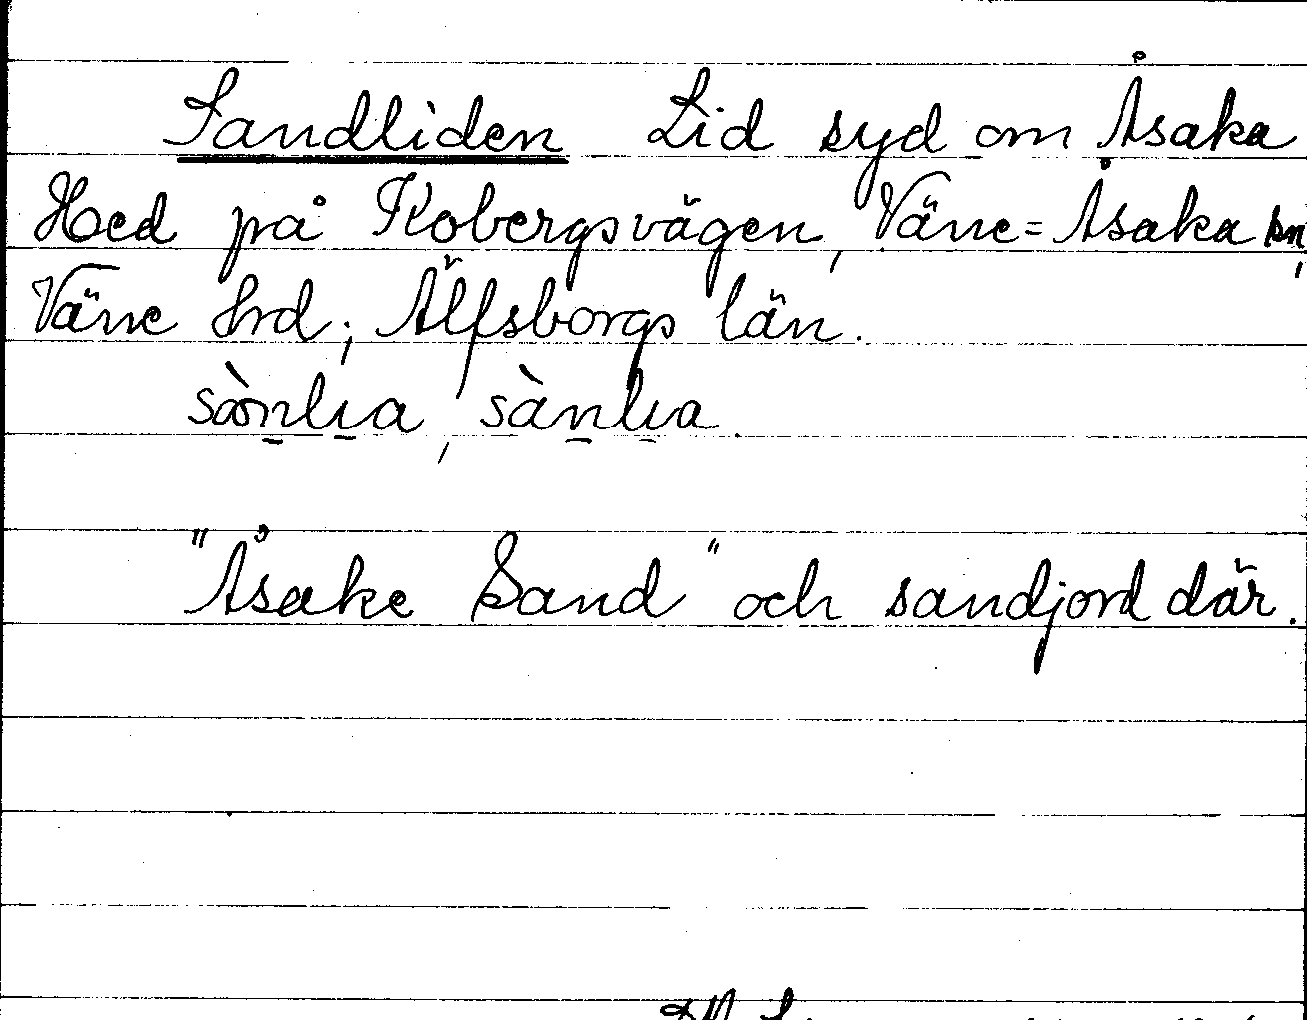 Sandliden Lid syd om Åsaka
Hed på Kobergsvägen, Väne=Åsaka sn,
Väne Hrd; Älfsborgs län.
"Åsake Sand" och sandjord där.